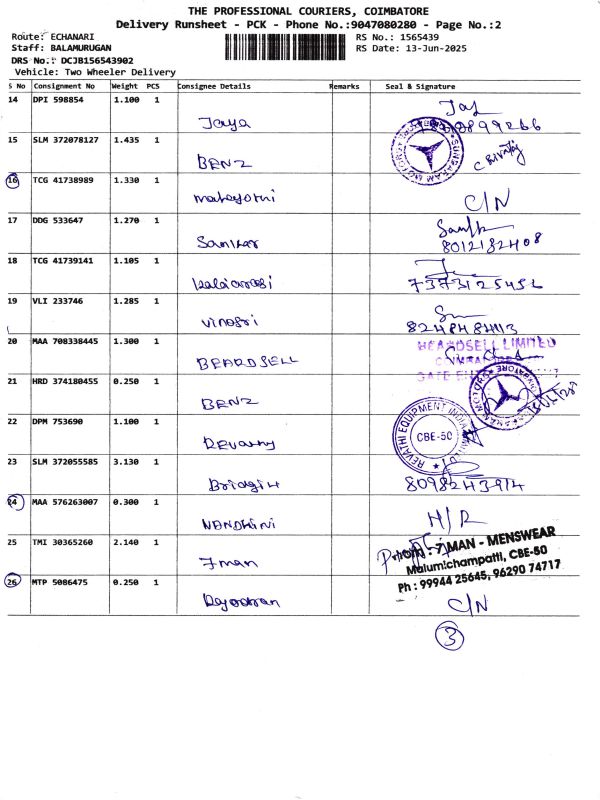 THE PROFESSIONAL COURIERS, COIMBATORE
Delivery Runsheet - PCK - Phone No.:9047080280 - Page No.:2
Route: ECHANARI
RS No.: 1565439
Staff: BALAMURUGAN
RS Date: 13-Jun-2025
DRS No.: DCJB156543902
Vehicle: Two Wheeler Delivery
S No Consignment No Weight PCS Consignee Details Remarks Seal & Signature
14 DPI 598854 1.100 1
Jaya
15 SLM 372078127 1.435 1
BENZ
16 TCG 41738989 1.330 1
C/N
17 DDG 533647 1.270 1
Sankar
8012182408
18 TCG 41739141 1.105 1
Kalaiarasi
7373125456
19 VLI 233746 1.285 1
8248484113
20 MAA 708338445 1.300 1
BEARDSELL
BEARDSELL LIMITED
21 HRD 374180455 0.250 1
BENZ
22 DPM 753690 1.100 1
REVATHI EQUIPMENT INDIA LIMITED
CBE-50
23 SLM 372055585 3.130 1
8098243914
24 MAA 576263007 0.300 1
NANDHINI
H/R
25 TMI 30365260 2.140 1
7man
7 MAN - MENSWEAR
Malumichampatti, CBE-50
Ph : 99944 25645, 96290 74717
26 MTP 5086475 0.250 1
C/N
3